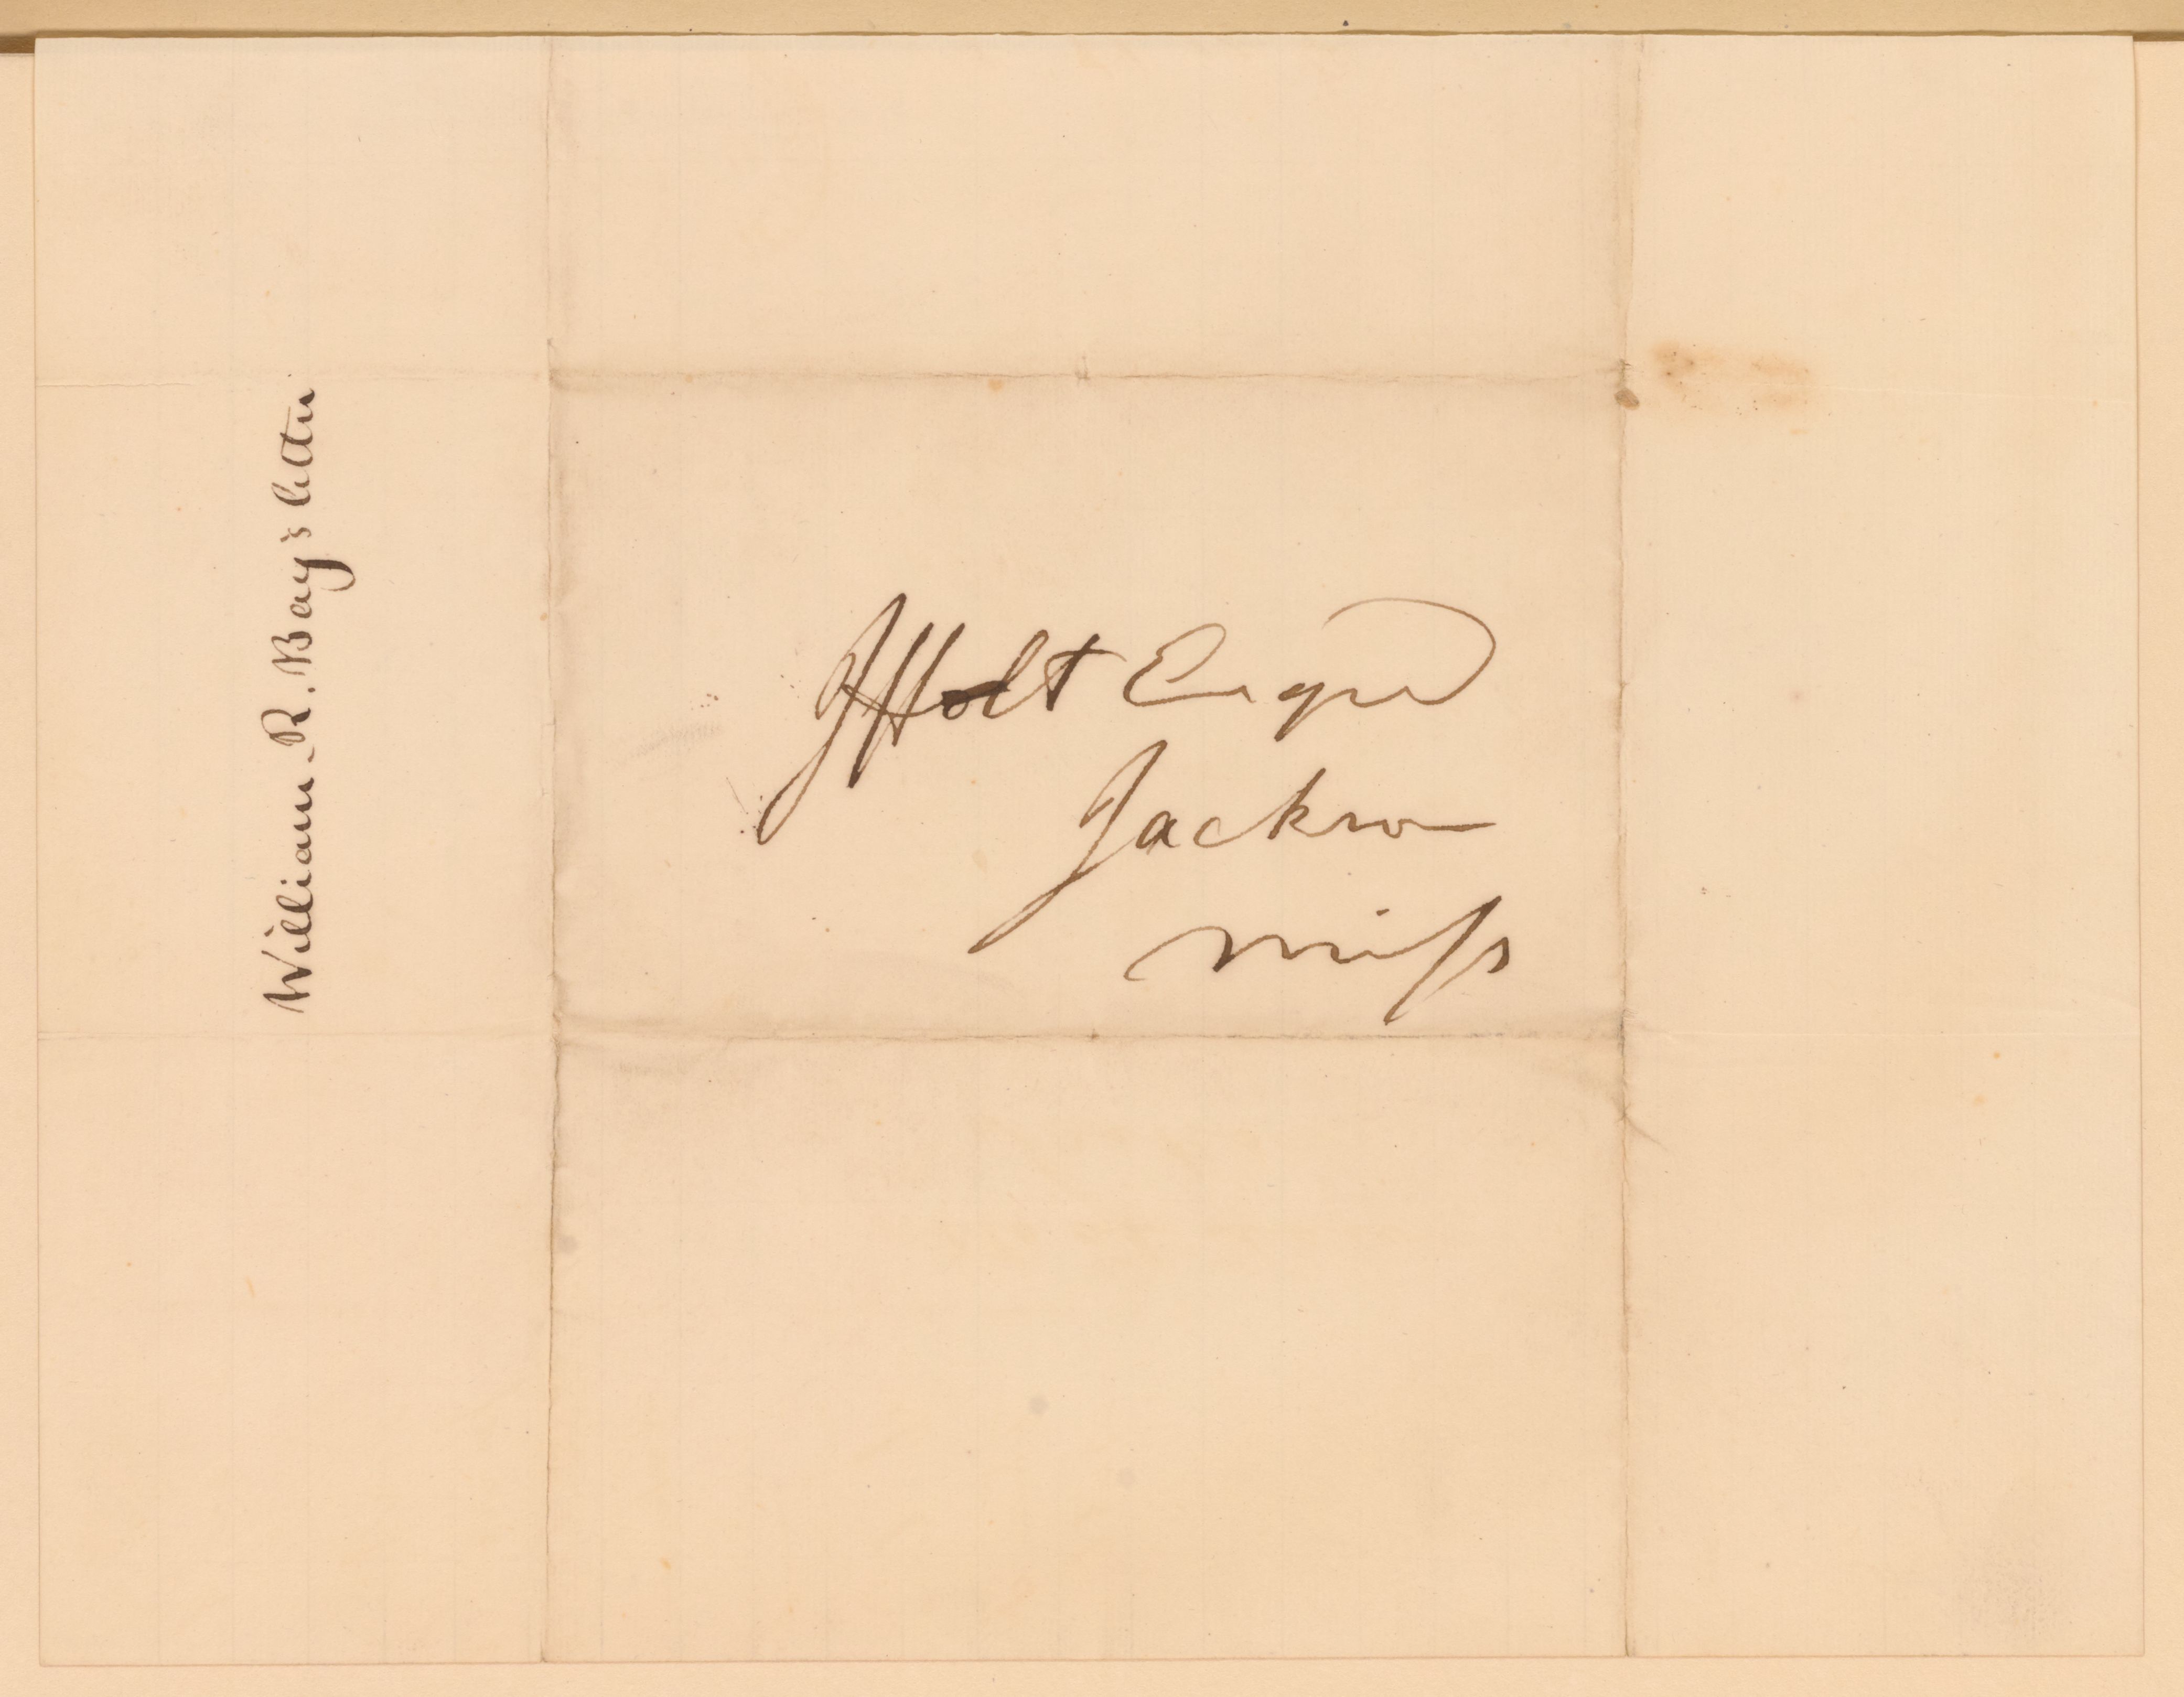 William R. Bay's letter
J Holt Esqre
Jackson
Miss